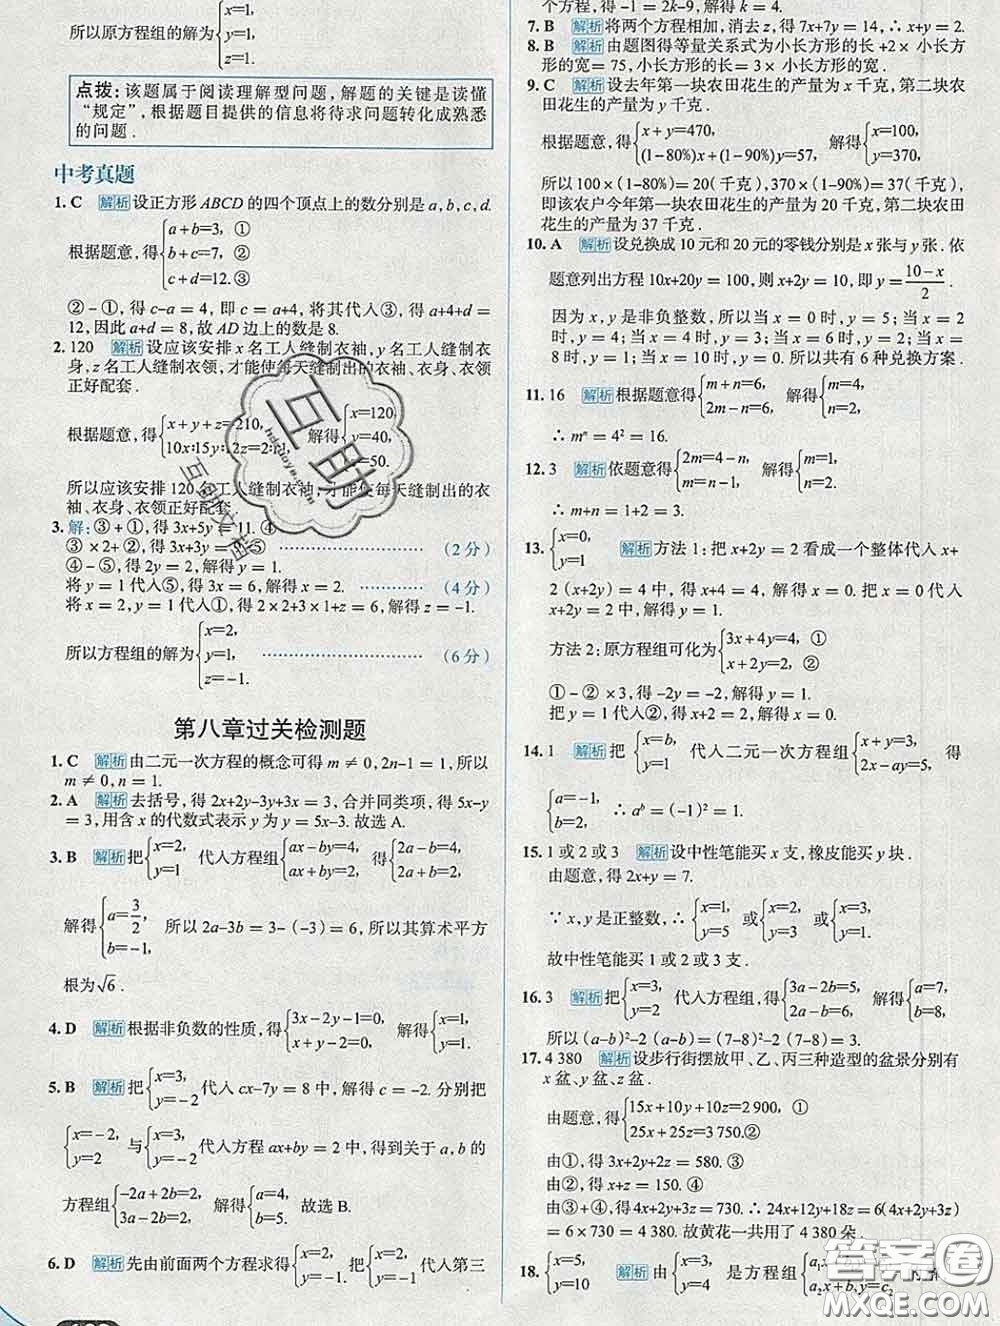 所以原方程组的解为{x=1, y=1, z=1.
点拨：该题属于阅读理解型问题，解题的关键是读懂
“规定”，根据题目提供的信息将待求问题转化成熟悉
的问题.
中考真题
1. C 解析 设正方形ABCD的四个顶点上的数分别是a,b,c,d.
根据题意,得{a+b=3, ① b+c=7, ② c+d=12. ③
②-①,得c-a=4,即c=a+4,将其代入③,得a+4+d=
12,因此a+d=8,故AD边上的数是8.
2. 120 解析 设应该安排x名工人缝制衣袖,y名工人缝制衣
身,z名工人缝制衣领,才能使每天缝制出的衣袖、衣身、衣领
正好配套.
根据题意,得{x+y+z=210, 10x∶15y∶12z=2∶1∶1, 解得{x=120, y=40, z=50.
所以应该安排120名工人缝制衣袖,才能使每天缝制出的衣
袖、衣身、衣领正好配套.
3. 解:③+①,得3x+5y=11. ④
③×2+②,得3x+3y=9. ⑤ (2分)
④-⑤,得2y=2,解得y=1.
将y=1代入⑤,得3x=6,解得x=2. (4分)
将x=2,y=1代入①,得2×2+3×1+z=6,解得z=-1.
所以方程组的解为{x=2, y=1, z=-1. (6分)
第八章过关检测题
1. C 解析 由二元一次方程的概念可得m≠0,2n-1=1,所以
m≠0,n=1.
2. A 解析 去括号,得2x+2y-3y+3x=3,合并同类项,得5x-y
=3,用含x的代数式表示y为y=5x-3.故选A.
3. B 解析 把{x=2, y=1 代入方程组{ax-by=4, ax+by=2, 得{2a-b=4, 2a+b=2,
解得{a=3/2, b=-1, 所以2a-3b=3-(-3)=6,所以其算术平方
根为√6.
4. D 解析 根据非负数的性质,得{3x-2y-1=0, x+y-2=0, 解得{x=1, y=1.
5. B 解析 把{x=3, y=-2 代入cx-7y=8中,得c=-2.分别把
{x=-2, y=2 与{x=3, y=-2 代入方程ax+by=2中,得到关于a,b的
方程组{-2a+2b=2, 3a-2b=2, 解得{a=4, b=5. 故选B.
6. D 解析 先由前面两个方程求得{x=2, y=-1. 把{x=2, y=-1 代入第三
个方程,得-1=2k-9,解得k=4.
7. B 解析 将两个方程相加,消去z,得7x+7y=14,∴x+y=2.
8. B 解析 由题图得等量关系式为小长方形的长+2×小长方
形的宽=75,小长方形的长=3×小长方形的宽.
9. C 解析 设去年第一块农田花生的产量为x千克,第二块农
田花生的产量为y千克.
根据题意,得{x+y=470, (1-80%)x+(1-90%)y=57, 解得{x=100, y=370,
所以100×(1-80%)=20(千克),370×(1-90%)=37(千克),
即该农户今年第一块农田花生的产量为20千克,第二块农田
花生的产量为37千克.
10. A 解析 设兑换成10元和20元的零钱分别是x张与y张.依
题意列出方程10x+20y=100,则x+2y=10,即y=(10-x)/2.
因为x,y是非负整数,所以当x=0时,y=5;当x=2
时,y=4;当x=4时,y=3;当x=6时,y=2;当x=
8时,y=1;当x=10时,y=0.所以共有6种兑换方案.
11. 16 解析 根据题意得{m+n=6, 2m-n=6, 解得{m=4, n=2,
∴mⁿ=4²=16.
12. 3 解析 依题意得{2m=4-n, m=n-1, 解得{m=1, n=2,
∴m+n=1+2=3.
13. {x=0, y=1 解析 方法1:把x+2y=2看成一个整体代入x+
2(x+2y)=4中,得x+4=4,解得x=0.把x=0代入
x+2y=2中,解得y=1.
方法2:原方程组可化为{3x+4y=4, ① x+2y=2, ②
①-②×3,得-2y=-2,解得y=1.
把y=1代入②,得x+2=2,解得x=0.
14. 1 解析 把{x=b, y=1 代入二元一次方程组{x+y=3, 2x-ay=5, 得
{a=-1, b=2, ∴aᵇ=(-1)²=1.
15. 1或2或3 解析 设中性笔能买x支,橡皮能买y块.
由题意,得2x+y=7.
∵x,y是正整数,∴{x=1, y=5 或{x=2, y=3 或{x=3, y=1.
故中性笔能买1或2或3支.
16. 3 解析 把{x=3, y=-2 代入方程组,得{3a-2b=5, 2a-2b=6, 解得{a=7, b=8,
所以(a-b)²-2(a-b)=(7-8)²-2(7-8)=3.
17. 4 380 解析 设步行街摆放甲、乙、丙三种造型的盆景分别有
x盆、y盆、z盆.
由题意,得{15x+10y+10z=2 900, ① 25x+25z=3 750. ②
由①,得3x+2y+2z=580. ③
由②,得x+z=150. ④
由③+④,得4x+2y+3z=730.∴24x+12y+18z=6(4x+2y+3z)
=6×730=4 380.故黄花一共用了4 380朵.
18. {x=5, y=10 解析 由{x=3, y=4 是方程组